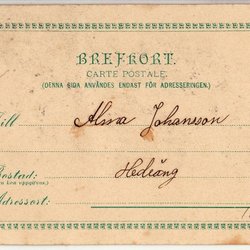 BREFKORT.
CARTE POSTALE.
(DENNA SIDA ANVÄNDES ENDAST FÖR ADRESSERINGEN.)
Till Alma Johansson
Bostad: Hediäng
(om den uppgifves.)
Adressort: